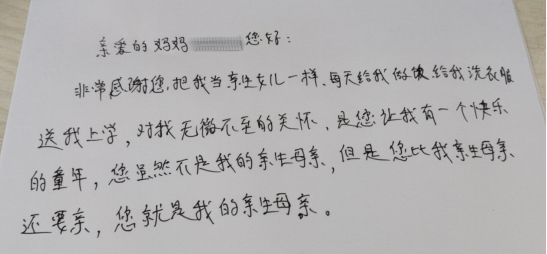 亲爱的妈妈 您好：
非常感谢您,把我当亲生女儿一样、每天给我做饭给我洗衣服
送我上学，对我无微不至的关怀，是您让我有一个快乐
的童年，您虽然不是我的亲生母亲，但是您比我亲生母亲
还要亲，您就是我的亲生母亲。